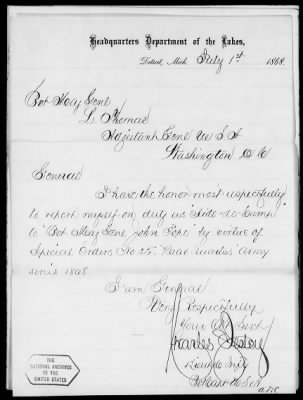 Headquarters Department of the Lakes,
Detroit, Mich. July 1st 1868.
Bvt Maj Genl
L. Thomas
Adjutant Genl U S A
Washington D C
General
I have the honor most respectfully
to report myself on duty as Aide-de-Camp
to "Bvt Maj Genl John Pope" by virtue of
Special Orders No 25 Head Quarters Army
1868
I am General
Very Respectfully
Your Obt Servt
Charles
Bvt Capt U S A
A D C
THE
NATIONAL ARCHIVES
OF THE
UNITED STATES